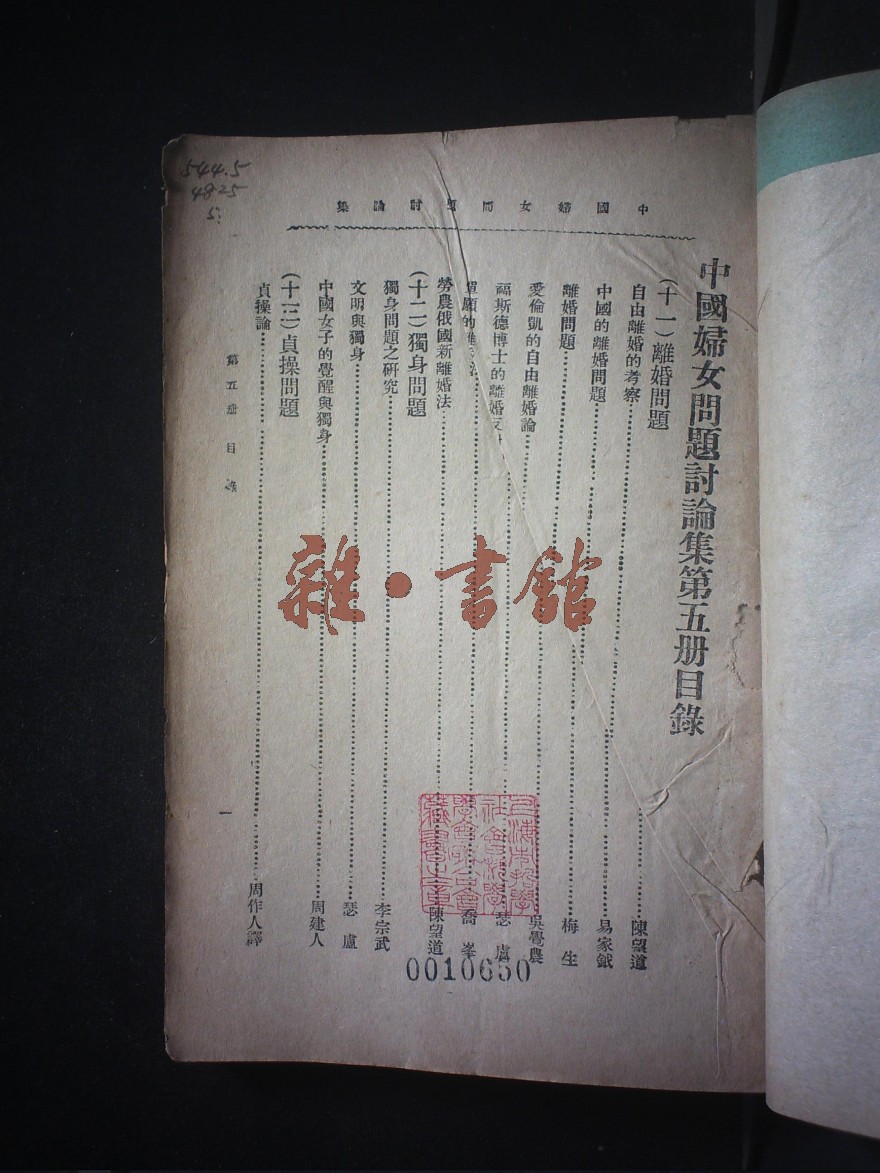 544.5
4825
5:
中國婦女問題討論集
中國婦女問題討論集第五册目錄
(十一)離婚問題
自由離婚的考察 陳望道
中國的離婚問題 易家鉞
離婚問題 梅生
愛倫凱的自由離婚論 吳覺農
福斯德博士的離婚 瑟盧
單願的 喬峯
勞農俄國新離婚法 陳望道
(十二)獨身問題
獨身問題之硏究 李宗武
文明與獨身 瑟盧
中國女子的覺醒與獨身 周建人
(十三)貞操問題
貞操論 周作人譯
第五册目錄
一
雜·書館
上海市哲學
社會科學
學會聯合會
藏書之章
0010650